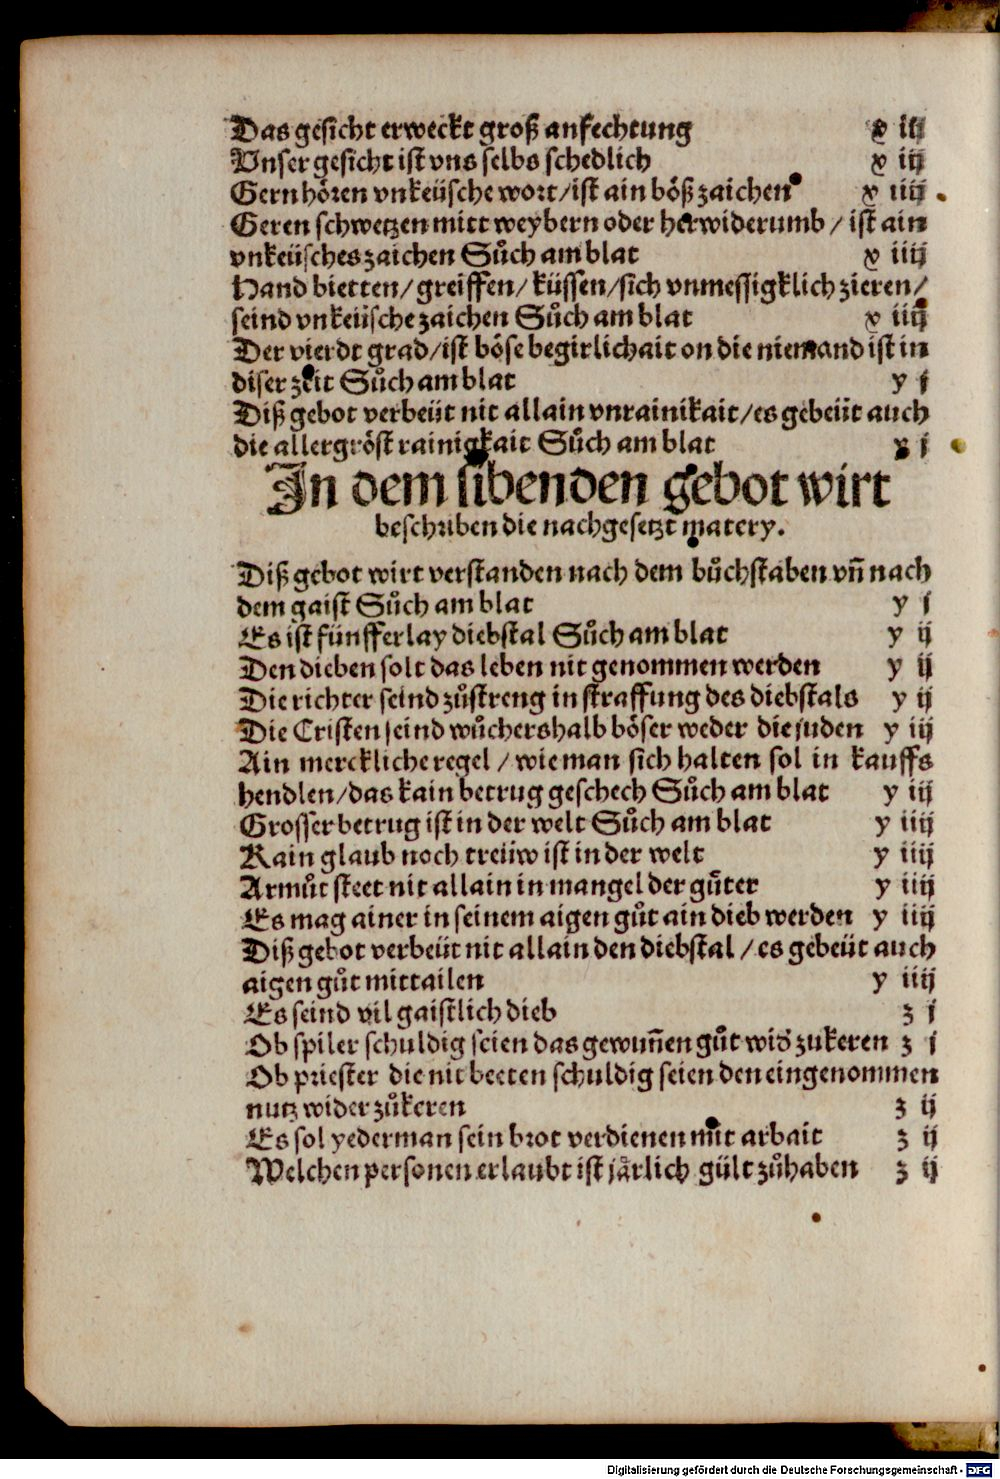 Das gesicht erweckt groß anfechtung x iij
Vnser gesicht ist vns selbs schedlich x iij
Gern hören vnkeüsche wort/ist ain böß zaichen x iiij
Geren schwetzen mitt weybern oder herwiderumb / ist ain
vnkeüsches zaichen Sůch am blat x iiij
Hand bietten/greiffen/küssen/sich vnmessigklich zieren/
seind vnkeüsche zaichen Sůch am blat x iiij
Der vierdt grad/ist böse begirlichait on die niemand ist in
diser zeit Sůch am blat y j
Diß gebot verbeüt nit allain vnrainikait/es gebeüt auch
die allergröst rainigkait Sůch am blat y j
In dem sibenden gebot wirt
beschriben die nachgesetzt matery.
Diß gebot wirt verstanden nach dem bůchstaben vñ nach
dem gaist Sůch am blat y j
Es ist fünfferlay diebstal Sůch am blat y ij
Den dieben solt das leben nit genommen werden y ij
Die richter seind zůstreng in straffung des diebstals y ij
Die Cristen seind wůchershalb böser weder die juden y iij
Ain merckliche regel / wie man sich halten sol in kauffs
hendlen/das kain betrug geschech Sůch am blat y iij
Grosser betrug ist in der welt Sůch am blat y iiij
Kain glaub noch treüw ist in der welt y iiij
Armůt steet nit allain in mangel der gůter y iiij
Es mag ainer in seinem aigen gůt ain dieb werden y iiij
Diß gebot verbeüt nit allain den diebstal / es gebeüt auch
aigen gůt mittailen y iiij
Es seind vil gaistlich dieb z j
Ob spiler schuldig seien das gewuñen gůt wið zukeren z j
Ob priester die nit beeten schuldig seien den eingenommen
nutz wider zůkeren z ij
Es sol yederman sein brot verdienen mit arbait z ij
Welchen personen erlaubt ist järlich gült zůhaben z ij
Digitalisierung gefördert durch die Deutsche Forschungsgemeinschaft - DFG